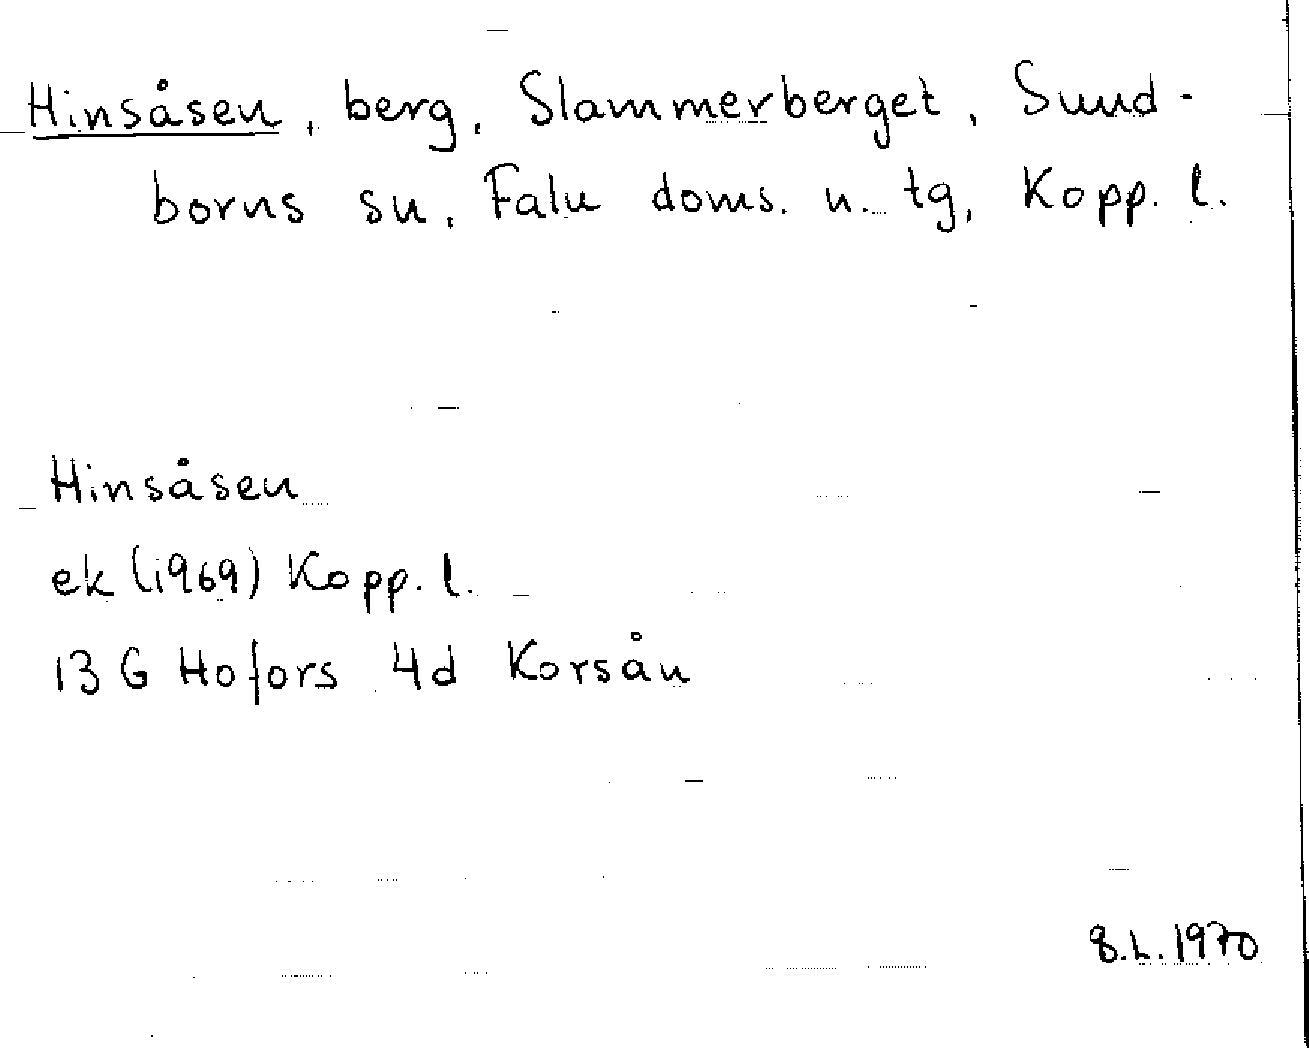 Hinsåsen, berg, Slammerberget, Sund-
borns sn, Falu doms. n. tg, Kopp. l.
Hinsåsen
ek (1969) Kopp. l.
13 G Hofors 4d Korsån
B.L. 1970